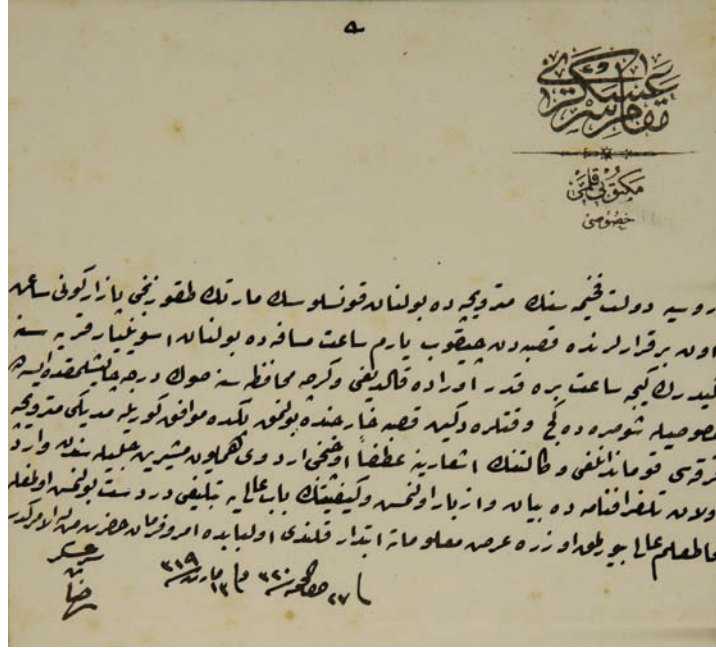 مقام سرعسكرى
مكتوبى قلمى
خصوصى
روسيه دولت فخيمه سنك متروويچه ده بولنان قونسلوسك مارتك طقوزنجى پازار كونى ساعت
اون بر قرارلرنده قصبه دن چيقوب يارم ساعت مسافه ده بولنان قريه سنه
كيدرك كيجه ساعت بره قدر اوراده قالديغى وكرچه محافظه سنه صوك درجه چاليشلمقده ايسه ده
خصوصيله شو صره ده كچ وقتلره دكين قصبه خارجنده بولنمق پكده موافق كورلمديكى متروويچه
قوماندانلغى وكالتنك اشعارينه عطفا اوچنجى اردوى همايون مشيريت جليله سندن وارد
اولان تلغرافنامه ده بيان وازبار اولنمش وكيفيتك باب عالى يه تبليغى دردست بولنمش اولمغله
محاط علم عالى بيورلمق اوزره عرض معلوماته ابتدار قلندى اولبابده امر وفرمان حضرت من له الامركدر
فى ٢٧ ذى الحجه سنه ٣٢٠ وفى ١٣ مارت سنه ٣١٩
سرعسكر
رضا